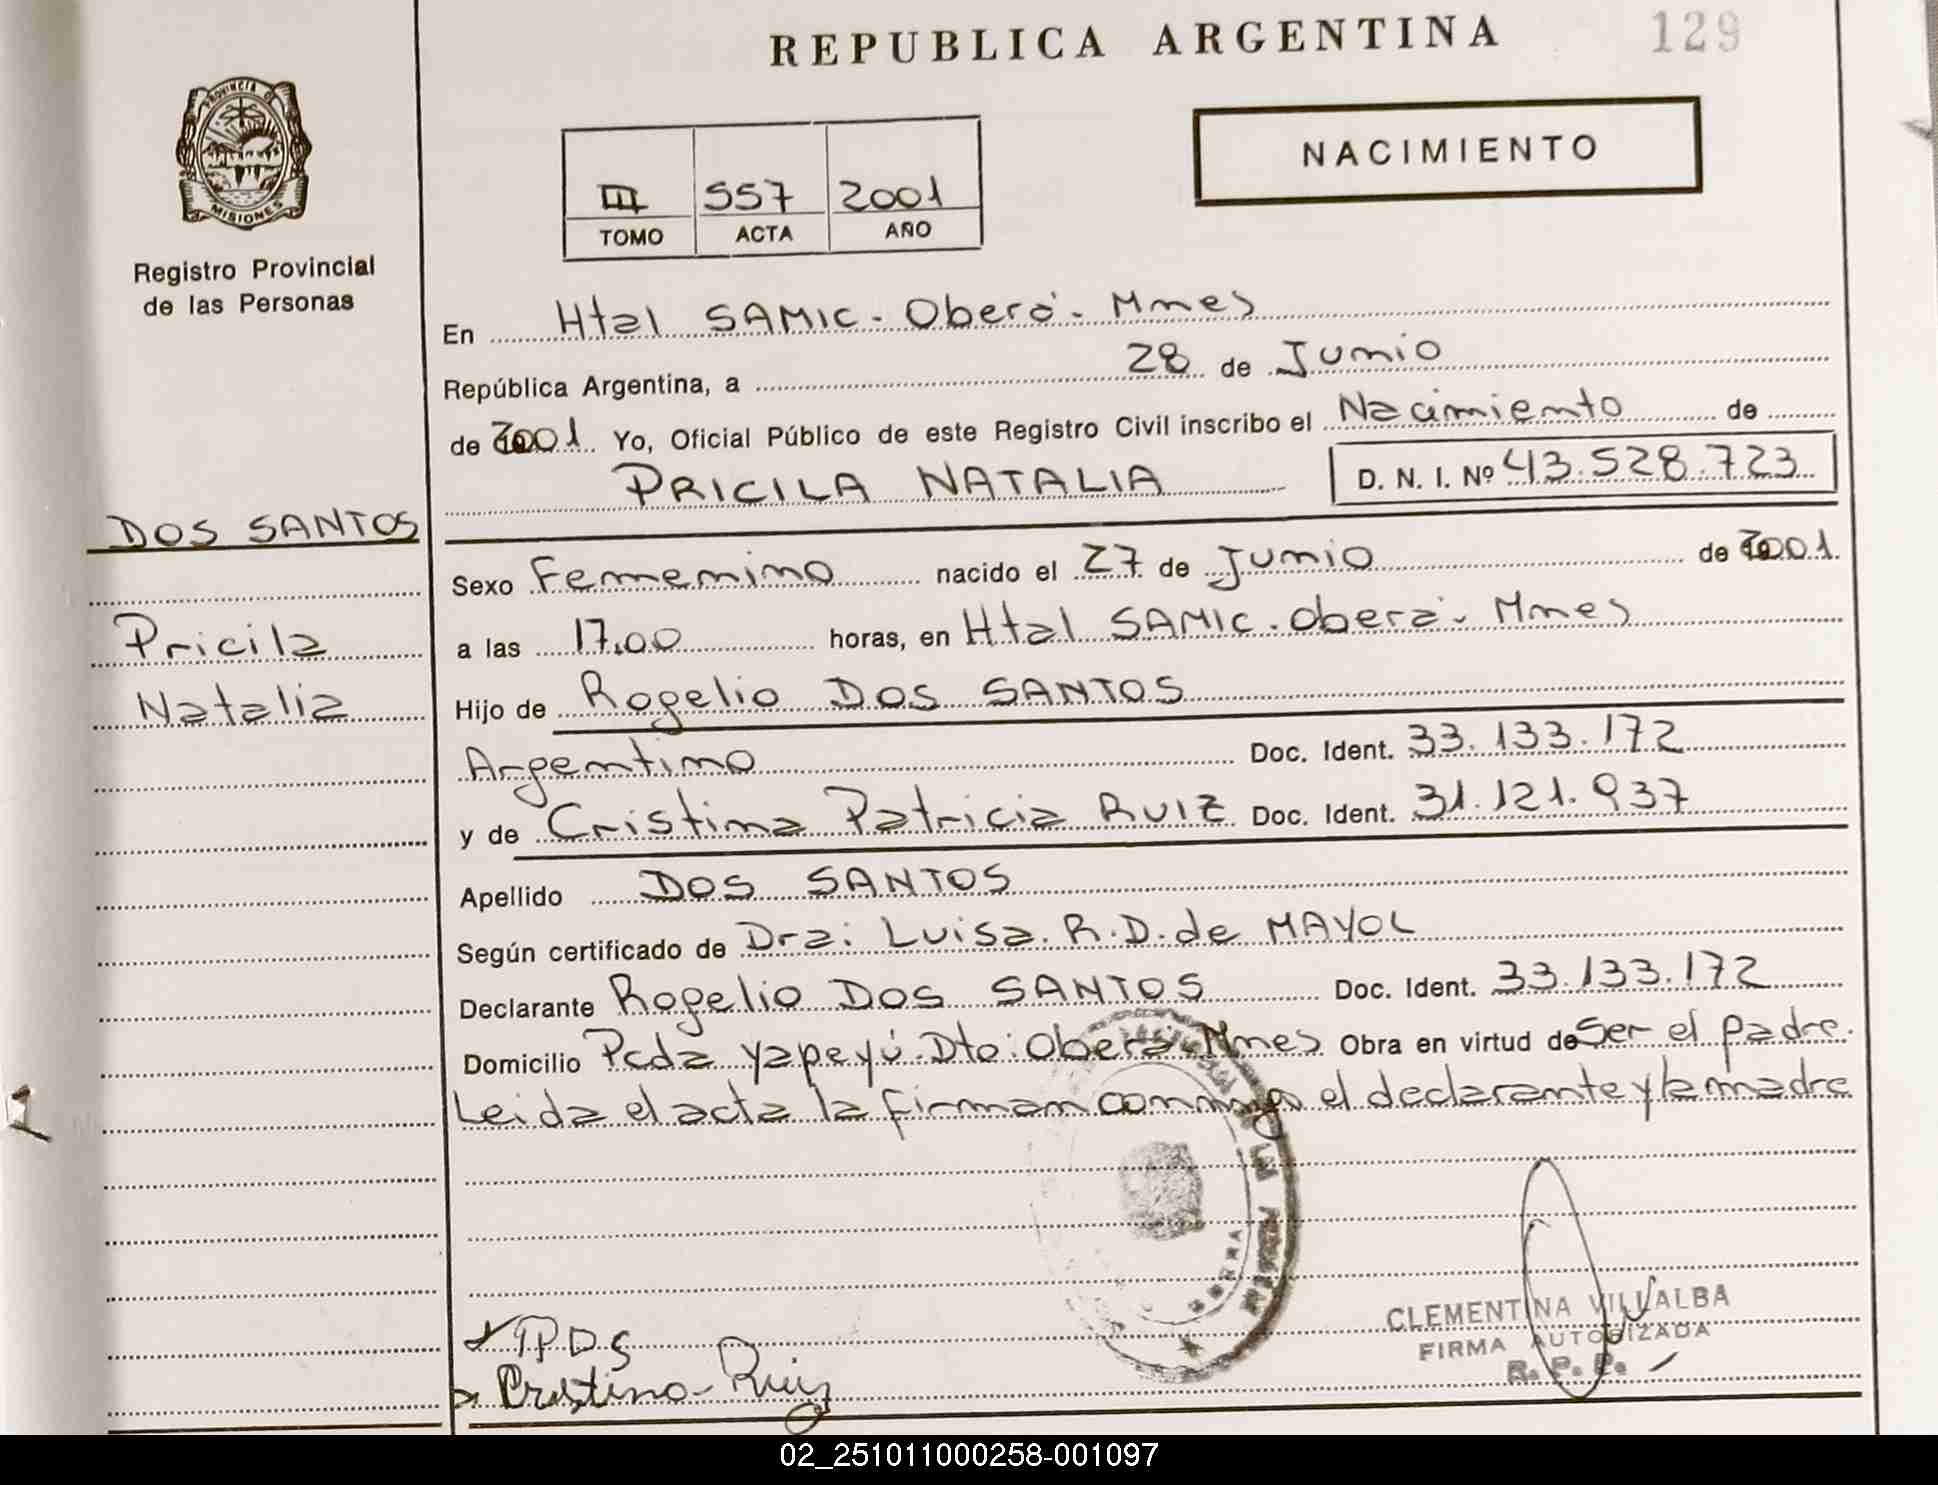 REPUBLICA ARGENTINA
129
PROVINCIA DE
MISIONES
Registro Provincial
de las Personas
III 557 2001
TOMO ACTA AÑO
NACIMIENTO
En Htal SAMIC. Oberá. Mnes
República Argentina, a 28 de Junio
de 2001 Yo, Oficial Público de este Registro Civil inscribo el Nacimiento de
PRICILA NATALIA D. N. I. Nº 43.528.723
DOS SANTOS
Pricila
Natalia
Sexo Femenino nacido el 27 de Junio de 2001.
a las 17.00 horas, en Htal SAMIC. Oberá. Mnes
Hijo de Rogelio DOS SANTOS
Argentino Doc. Ident. 33.133.172
y de Cristina Patricia RUIZ Doc. Ident. 31.121.937
Apellido DOS SANTOS
Según certificado de Dra: Luisa. R.D. de MAYOL
Declarante Rogelio DOS SANTOS Doc. Ident. 33.133.172
Domicilio Pcda Yapeyú. Dto: Oberá. Mnes Obra en virtud de Ser el padre.
Leida el acta la firman conmigo el declarante y la madre
R P D S
Cristina Ruiz
CLEMENTINA VILLALBA
FIRMA AUTORIZADA
R. P. P.
02_251011000258-001097